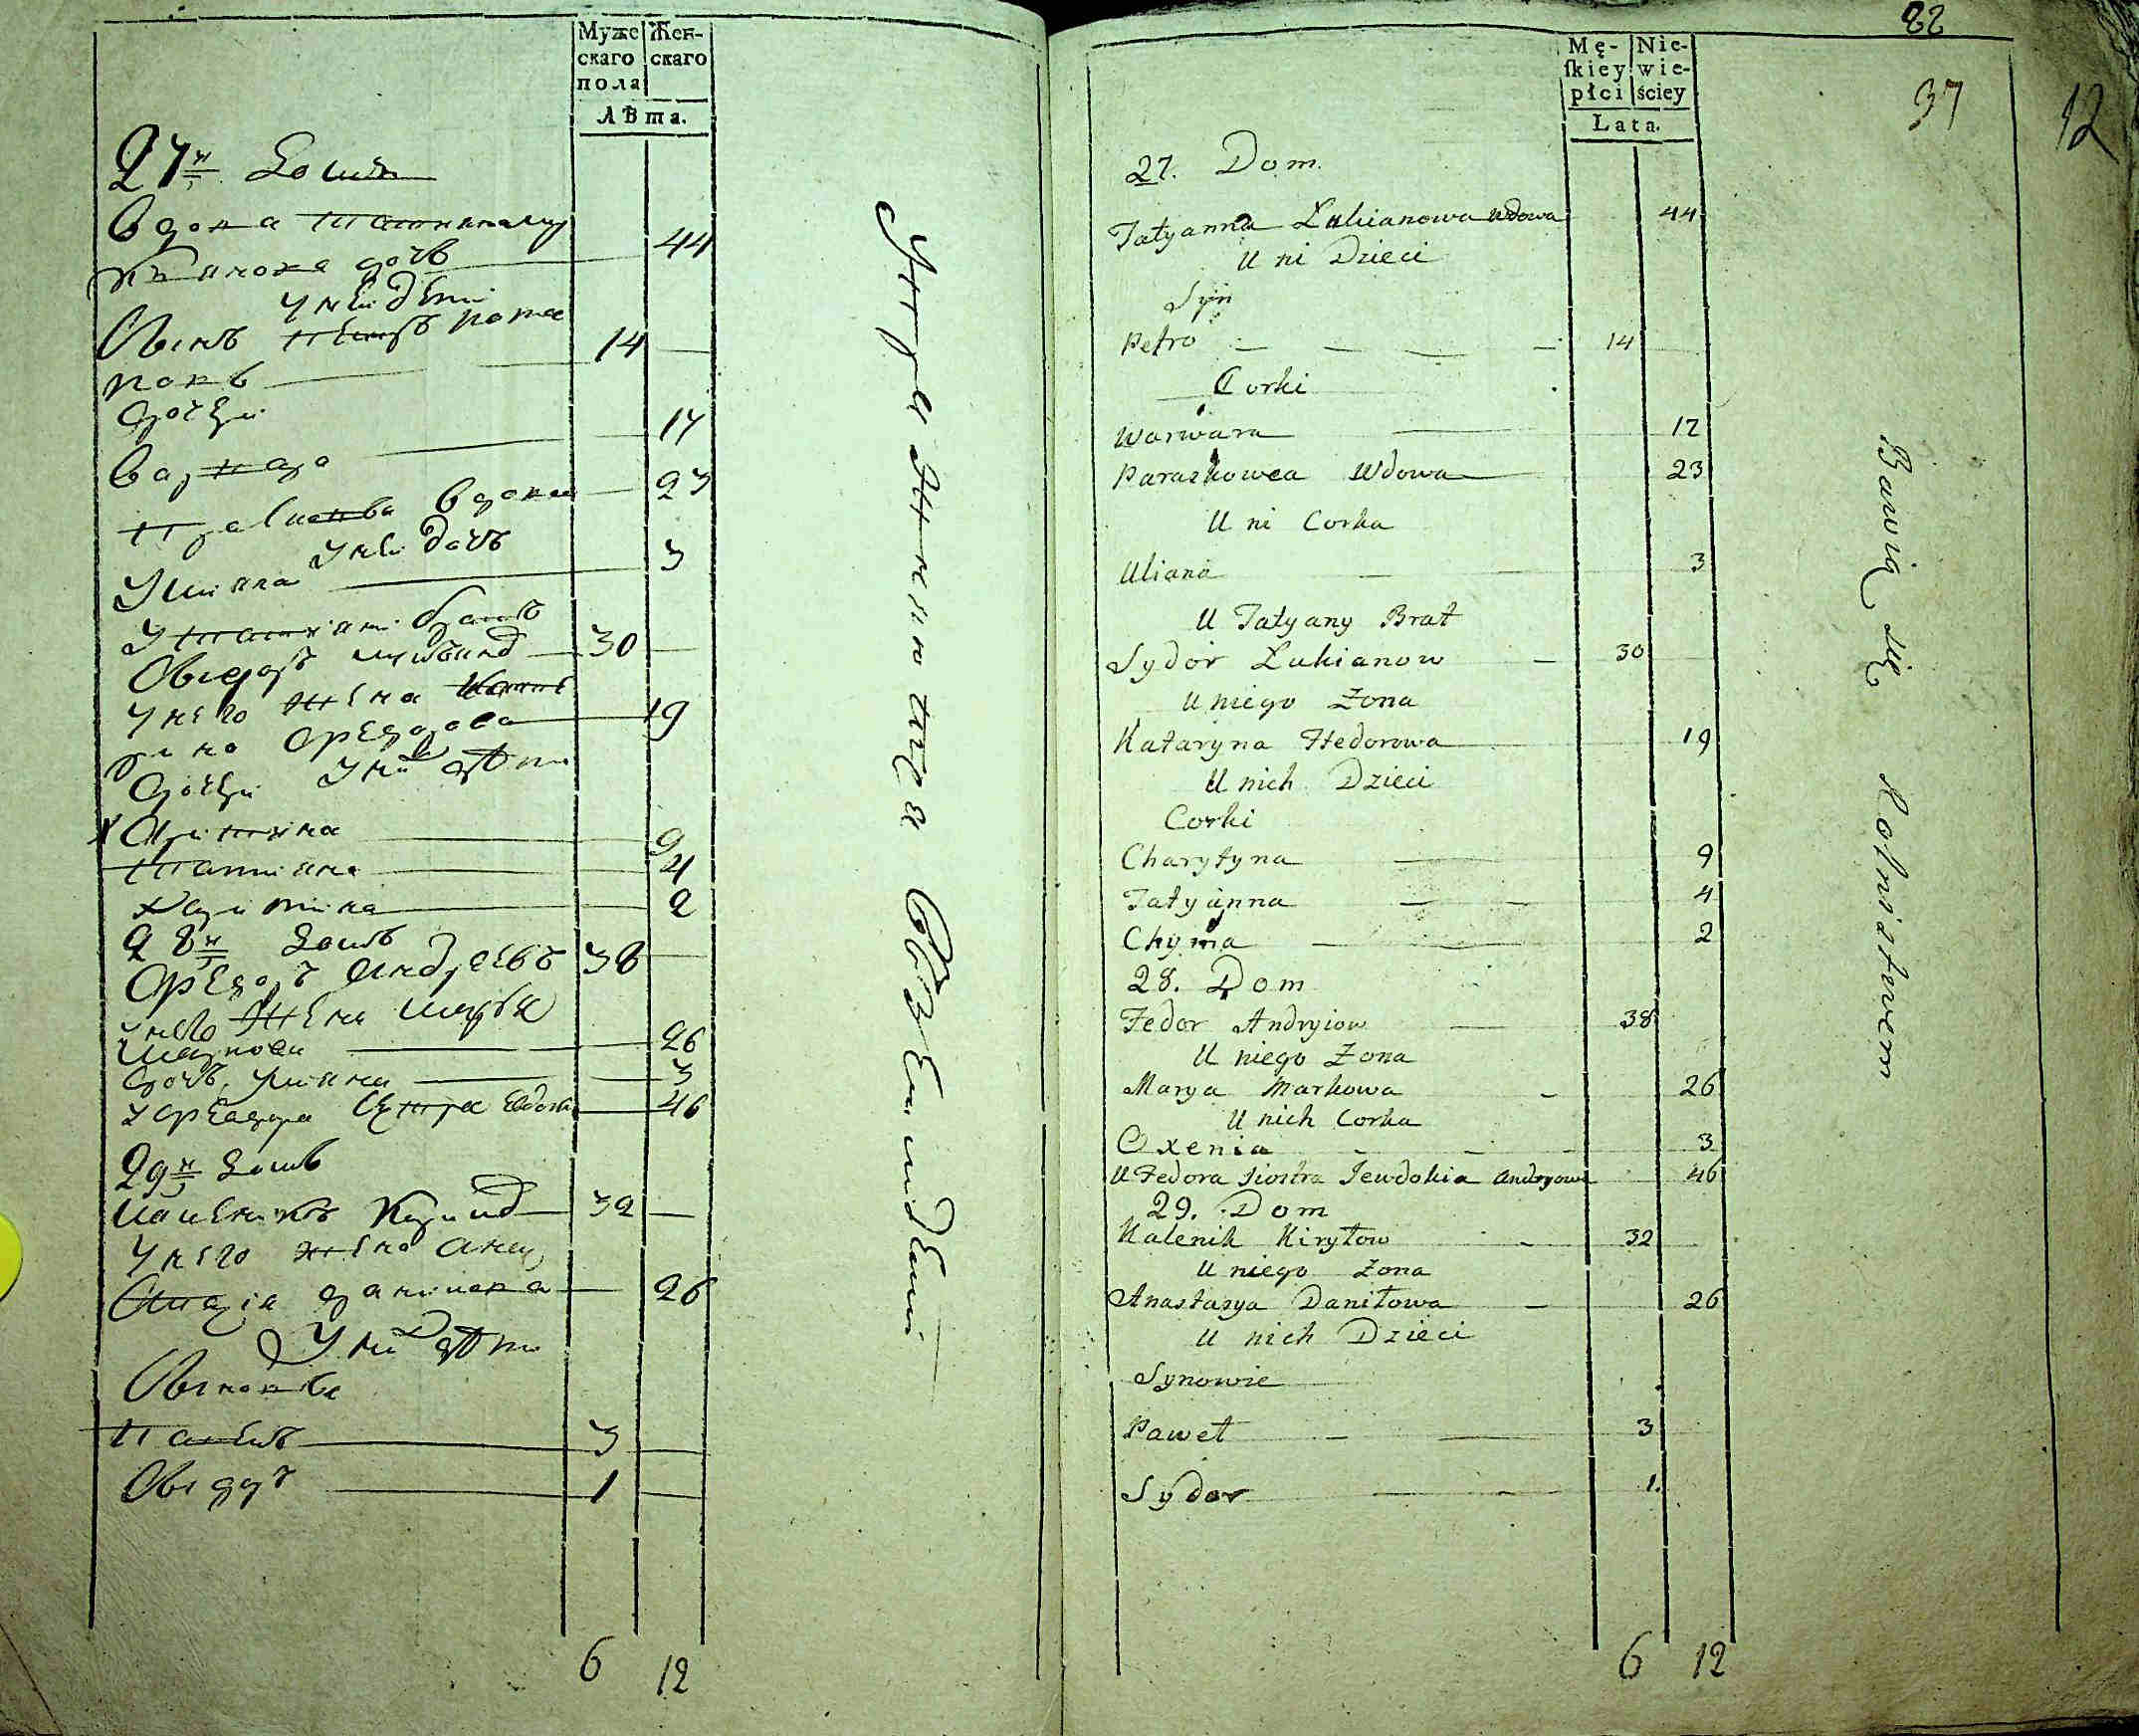 Мужескаго пола
Женскаго
Лѣта.
27й Домъ
Вдова Татияна лу
кьянова дочь 44
У неи дети
Сынъ Петръ
14
дочери
Варвара 17
Прасковья вдова 23
У неи дочь
Улияна 3
У татияни братъ
Сидоръ лукьянов 30
У него жена Кате
рина Федорова 19
У них дѣти
дочери
Харитина 9
Татияна 4
2
28й Домъ
Федоръ Андреевъ 38
У него жена марья
маркова 26
дочь 3
У Федора сестра Евдокия 46
29й Домъ
Каленикъ Кирилов 32
У него жена Анас
тасия данилова 26
У них дѣти
Сыновья
Павелъ 3
Сидоръ 1
6 12
Упражняются в Земледелии
22
37
12
Mę-
skiey
płci
Nie-
wie-
ściey
Lata.
27. Dom.
Tatyanna Łukianowa Wdowa 44
U ni Dzieci
Syn
Petro 14
Corki
Warwara 17
Paraskowea Wdowa 23
U ni Corka
Uliana 3
U Tatyany Brat
Sydor Łukianow 30
U niego Zona
Kataryna Fedorowa 19
U nich Dzieci
Corki
Charytyna 9
Tatyanna 4
Chyma 2
28. Dom
Fedor Andryiow 38
U niego Zona
Marya Markowa 26
U nich Corka
Oxenia 3
U Fedora Siostra Jewdokia Andryowa 46
29. Dom
Kalenik Kiryłow 32
U niego Zona
Anastasya Daniłowa 26
U nich Dzieci
Synowie
Paweł 3
Sydor 1.
6 12
Bawią się Rolnictwem